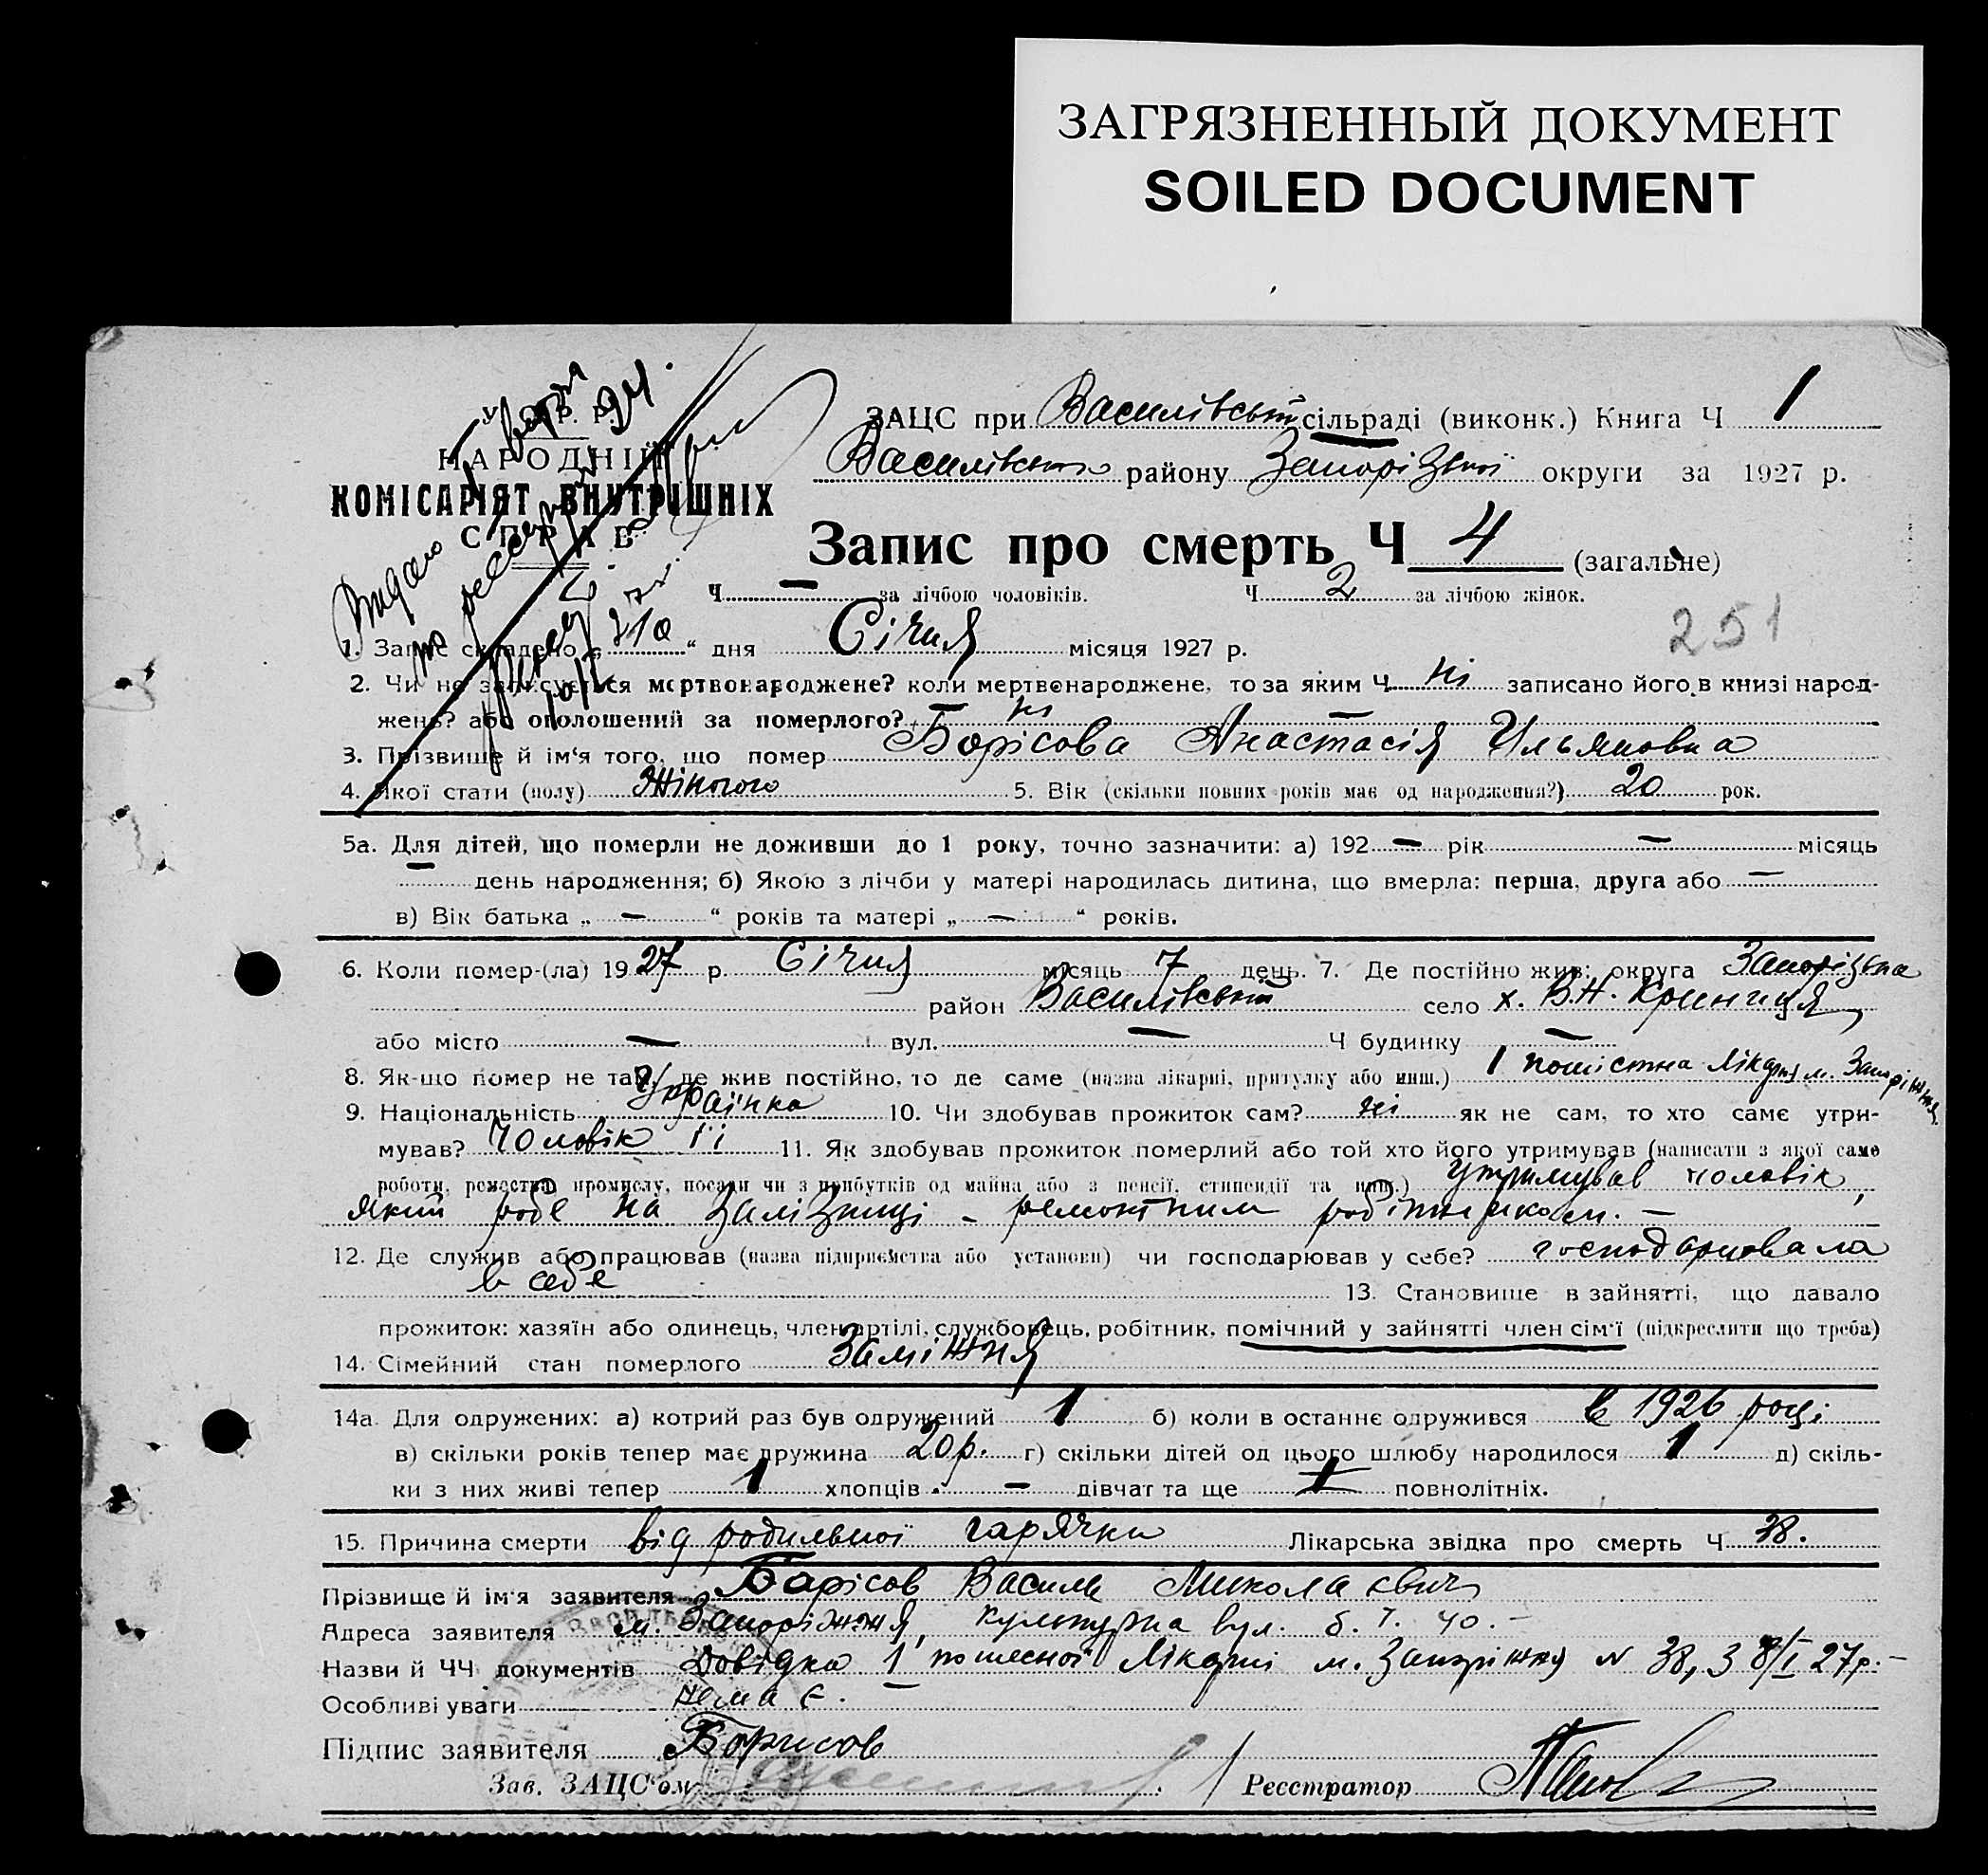 ЗАГРЯЗНЕННЫЙ ДОКУМЕНТ
SOILED DOCUMENT
У. С. Р. Р.
НАРОДНІЙ
КОМІСАРІЯТ ВНУТРІШНІХ
СПРАВ
ЗАЦС при Василівській сільраді (виконк.) Книга Ч 1
Василівського району Запорізької округи за 1927 р.
Запис про смерть Ч 4 (загальне)
Ч — за лічбою чоловіків. Ч 2 за лічбою жінок.
251
1. Запис складено „ “ дня Січня місяця 1927 р.
2. Чи не записується мертвонароджене? коли мертвонароджене, то за яким Ч ні записано його в книзі народ-
жень? або оголошений за померлого? ні —
3. Прізвище й ім‘я того, що помер Борісова Анастасія Ильяновна
4. Якої стати (полу) Жіночого 5. Вік (скільки повних років має од народження?) 20 рок.
5а. Для дітей, що померли не доживши до 1 року, точно зазначити: а) 192 — рік — місяць
— день народження; б) Якою з лічби у матері народилась дитина, що вмерла: перша, друга або —
в) Вік батька „ — “ років та матері „ — “ років.
6. Коли помер-(ла) 1927 р. Січня місяць 7 день. 7. Де постійно жив: округа Запорізька
район Василівський село х. В.Н. Криниця
або місто — вул. — Ч будинку —
8. Як-що помер не там, де жив постійно, то де саме (назва лікарні, притулку або инш.) 1 помістна Лікарня м. Запоріжжя
9. Національність Українка 10. Чи здобував прожиток сам? ні як не сам, то хто саме утри-
мував? Чоловік її 11. Як здобував прожиток померлий або той хто його утримував (написати з якої саме
роботи, ремества, промислу, посади чи з прибутків од майна або з пенсії, стипендії та инш.) утримував чоловік,
який робе на Залізниці - ремонтним робітником. —
12. Де служив або працював (назва підприємства або установи) чи господарював у себе? господарювала
в себе 13. Становище в зайнятті, що давало
прожиток: хазяїн або одинець, член артілі, службовець, робітник, помічний у зайнятті член сім‘ї (підкреслити що треба)
14. Сімейний стан померлого Заміжня
14а. Для одружених: а) котрий раз був одружений 1 б) коли в останнє одружився в 1926 році
в) скільки років тепер має дружина 20 р. г) скільки дітей од цього шлюбу народилося 1 д) скіль-
ки з них живі тепер 1 хлопців — дівчат та ще повнолітніх.
15. Причина смерти від родильної гарячки Лікарська звідка про смерть Ч 38.
Прізвище й ім‘я заявителя Барісов Василь Миколаєвич
Адреса заявителя м. Запоріжжя, культурна вул. б. Т. 40. -
Назви й ЧЧ документів Довідка 1 помесної Лікарні м. Запоріжжя N 38, з 8/I 27 р. -
Особливі уваги немає.
Підпис заявителя Борисов
Зав. ЗАЦС‘ом Реєстратор